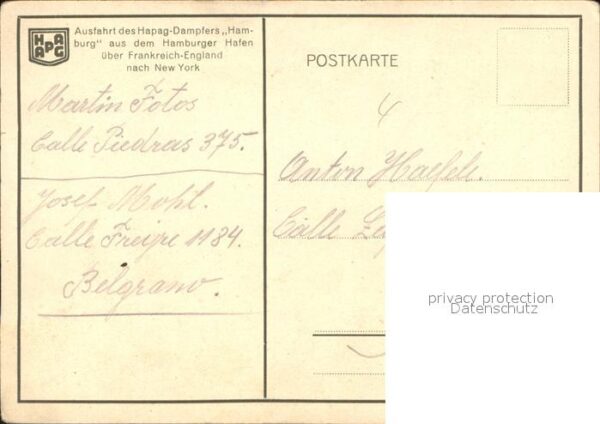 HAPAG
Ausfahrt des Hapag-Dampfers „Ham-
burg" aus dem Hamburger Hafen
über Frankreich-England
nach New York
Martin Fotos
Calle Piedras 375.
Josef Mohl.
Calle Freire 1184.
Belgrano.
POSTKARTE
4
Anton Haefele.
Calle
privacy protection
Datenschutz